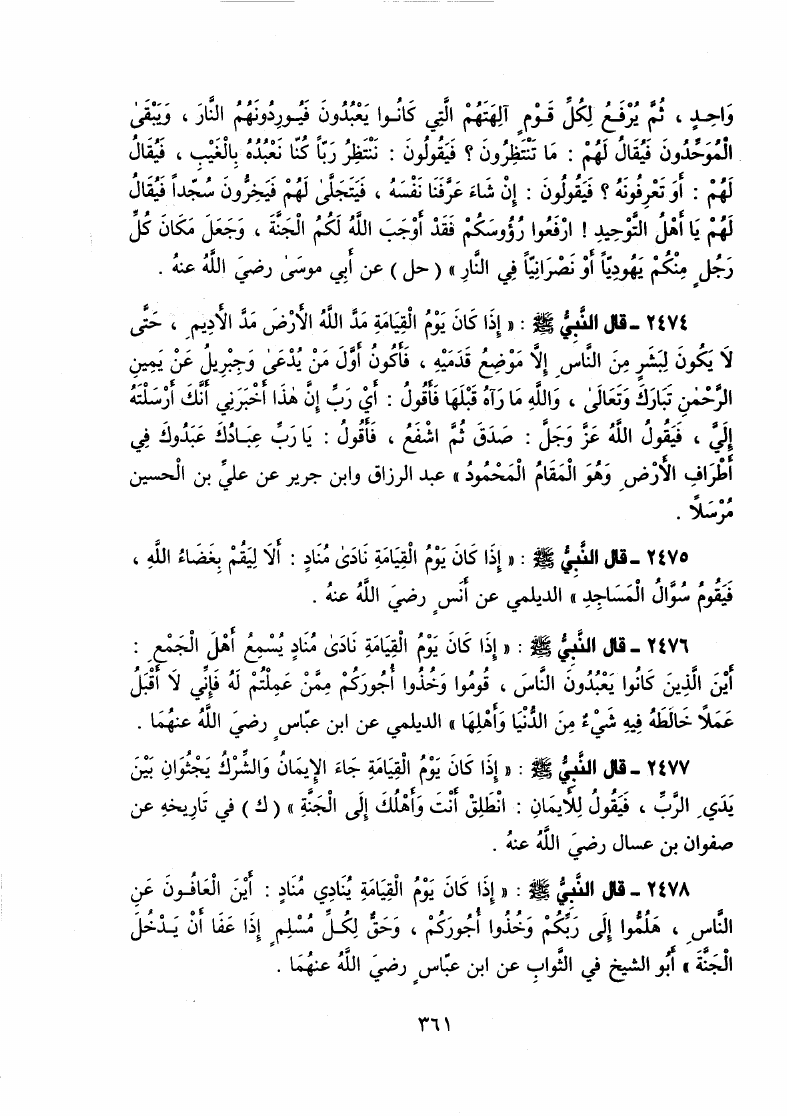 وَاحِدٍ ، ثُمَّ يُرْفَعُ لِكُلِّ قَوْمٍ آلِهَتَهُمْ الَّتِي كَانُوا يَعْبُدُونَ فَيُورِدُونَهُمُ النَّارَ ، وَيَبْقَى
الْمُوَحِّدُونَ فَيُقَالُ لَهُمْ : مَا تَنْتَظِرُونَ ؟ فَيَقُولُونَ : نَنْتَظِرُ رَبّاً كُنَّا نَعْبُدُهُ بِالْغَيْبِ ، فَيُقَالُ
لَهُمْ : أَوَ تَعْرِفُونَهُ ؟ فَيَقُولُونَ : إِنْ شَاءَ عَرَّفَنَا نَفْسَهُ ، فَيَتَجَلَّى لَهُمْ فَيَخِرُّونَ سُجَّداً فَيُقَالُ
لَهُمْ يَا أَهْلَ التَّوْحِيدِ ! ارْفَعُوا رُؤُوسَكُمْ فَقَدْ أَوْجَبَ اللَّهُ لَكُمُ الْجَنَّةَ ، وَجَعَلَ مَكَانَ كُلِّ
رَجُلٍ مِنْكُمْ يَهُودِيّاً أَوْ نَصْرَانِيّاً فِي النَّارِ » ( حل ) عن أَبِي موسَى رضيَ اللَّهُ عنهُ .
٢٤٧٤ ـ قال النَّبِيُّ ﷺ : « إِذَا كَانَ يَوْمُ الْقِيَامَةِ مَدَّ اللَّهُ الأَرْضَ مَدَّ الأَدِيمِ ، حَتَّى
لَا يَكُونَ لِبَشَرٍ مِنَ النَّاسِ إِلاَّ مَوْضِعُ قَدَمَيْهِ ، فَأَكُونُ أَوَّلَ مَنْ يُدْعَى وَجِبْرِيلُ عَنْ يَمِينِ
الرَّحْمٰنِ تَبَارَكَ وَتَعَالَى ، وَاللَّهِ مَا رَآهُ قَبْلَهَا فَأَقُولُ : أَيْ رَبِّ إِنَّ هٰذَا أَخْبَرَنِي أَنَّكَ أَرْسَلْتَهُ
إِلَيَّ ، فَيَقُولُ اللَّهُ عَزَّ وَجَلَّ : صَدَقَ ثُمَّ اشْفَعْ ، فَأَقُولُ : يَا رَبِّ عِبَادُكَ عَبَدُوكَ فِي
أَطْرَافِ الأَرْضِ وَهُوَ الْمَقَامُ الْمَحْمُودُ » عبد الرزاق وابن جرير عن عليِّ بن الْحسين
مُرْسَلاً .
٢٤٧٥ ـ قال النَّبِيُّ ﷺ : « إِذَا كَانَ يَوْمُ الْقِيَامَةِ نَادَى مُنَادٍ : أَلَا لِيَقُمْ بِغَضَاءُ اللَّهِ ،
فَيَقُومُ سُؤَّالُ الْمَسَاجِدِ » الديلمي عن أَنسٍ رضيَ اللَّهُ عنهُ .
٢٤٧٦ ـ قال النَّبِيُّ ﷺ : « إِذَا كَانَ يَوْمُ الْقِيَامَةِ نَادَى مُنَادٍ يُسْمِعُ أَهْلَ الْجَمْعِ :
أَيْنَ الَّذِينَ كَانُوا يَعْبُدُونَ النَّاسَ ، قُومُوا وَخُذُوا أُجُورَكُمْ مِمَّنْ عَمِلْتُمْ لَهُ فَإِنِّي لَا أَقْبَلُ
عَمَلاً خَالَطَهُ فِيهِ شَيْءٌ مِنَ الدُّنْيَا وَأَهْلِهَا » الديلمي عن ابن عبّاسٍ رضيَ اللَّهُ عنهُمَا .
٢٤٧٧ ـ قال النَّبِيُّ ﷺ : « إِذَا كَانَ يَوْمُ الْقِيَامَةِ جَاءَ الإِيمَانُ وَالشِّرْكُ يَجْثُوَانِ بَيْنَ
يَدَيِ الرَّبِّ ، فَيَقُولُ لِلْأَيمَانِ : انْطَلِقْ أَنْتَ وَأَهْلُكَ إِلَى الْجَنَّةِ » ( ك ) في تَارِيخِهِ عن
صفوان بن عسال رضيَ اللَّهُ عنهُ .
٢٤٧٨ ـ قال النَّبِيُّ ﷺ : « إِذَا كَانَ يَوْمُ الْقِيَامَةِ يُنَادِي مُنَادٍ : أَيْنَ الْعَافُونَ عَنِ
النَّاسِ ، هَلُمُّوا إِلَى رَبِّكُمْ وَخُذُوا أُجُورَكُمْ ، وَحَقٌّ لِكُلِّ مُسْلِمٍ إِذَا عَفَا أَنْ يَدْخُلَ
الْجَنَّةَ » أَبُو الشيخ في الثَّوابِ عن ابن عبّاسٍ رضيَ اللَّهُ عنهُمَا .
٣٦١